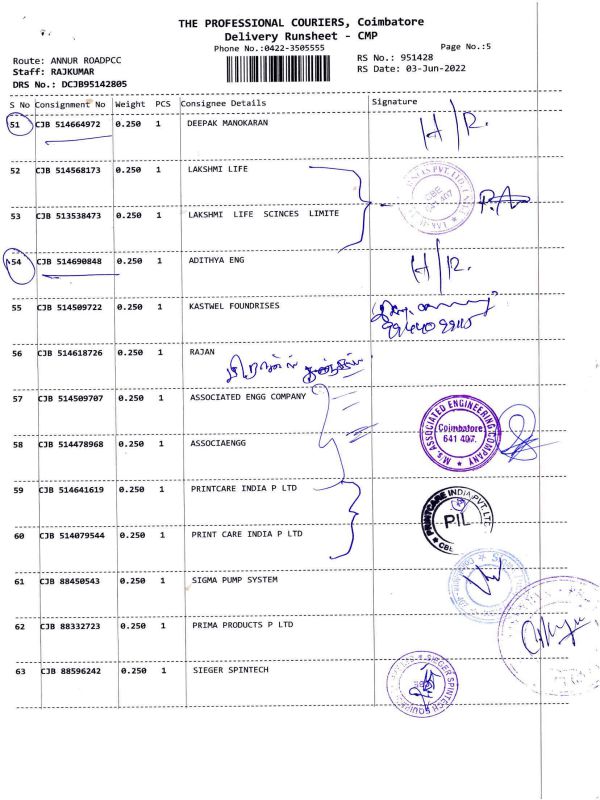 THE PROFESSIONAL COURIERS, Coimbatore
Delivery Runsheet - CMP
Phone No.:0422-3505555
Page No.:5
Route: ANNUR ROADPCC
RS No.: 951428
Staff: RAJKUMAR
RS Date: 03-Jun-2022
DRS No.: DCJB95142805
S No Consignment No Weight PCS Consignee Details Signature
51 CJB 514664972 0.250 1 DEEPAK MANOKARAN H/R.
52 CJB 514568173 0.250 1 LAKSHMI LIFE
53 CJB 513538473 0.250 1 LAKSHMI LIFE SCINCES LIMITE
54 CJB 514690848 0.250 1 ADITHYA ENG H/R.
55 CJB 514509722 0.250 1 KASTWEL FOUNDRISES
56 CJB 514618726 0.250 1 RAJAN
57 CJB 514509707 0.250 1 ASSOCIATED ENGG COMPANY
M/s. ASSOCIATED ENGINEERING COMPANY
Coimbatore
641 407.
58 CJB 514478968 0.250 1 ASSOCIAENGG
59 CJB 514641619 0.250 1 PRINTCARE INDIA P LTD
PRINTCARE INDIA PVT. LTD
PIL
CBE
60 CJB 514079544 0.250 1 PRINT CARE INDIA P LTD
61 CJB 88450543 0.250 1 SIGMA PUMP SYSTEM
62 CJB 88332723 0.250 1 PRIMA PRODUCTS P LTD
63 CJB 88596242 0.250 1 SIEGER SPINTECH
SIEGER SPINTECH